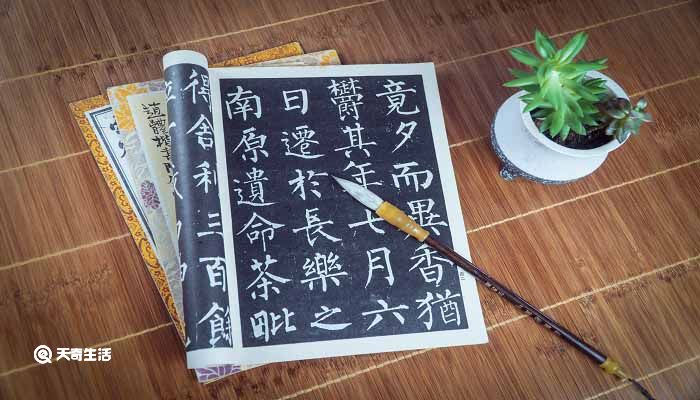 竟夕而異香猶
鬱其年七月六
日遷於長樂之
南原遺命茶毗
得舍利三百餘
天奇生活